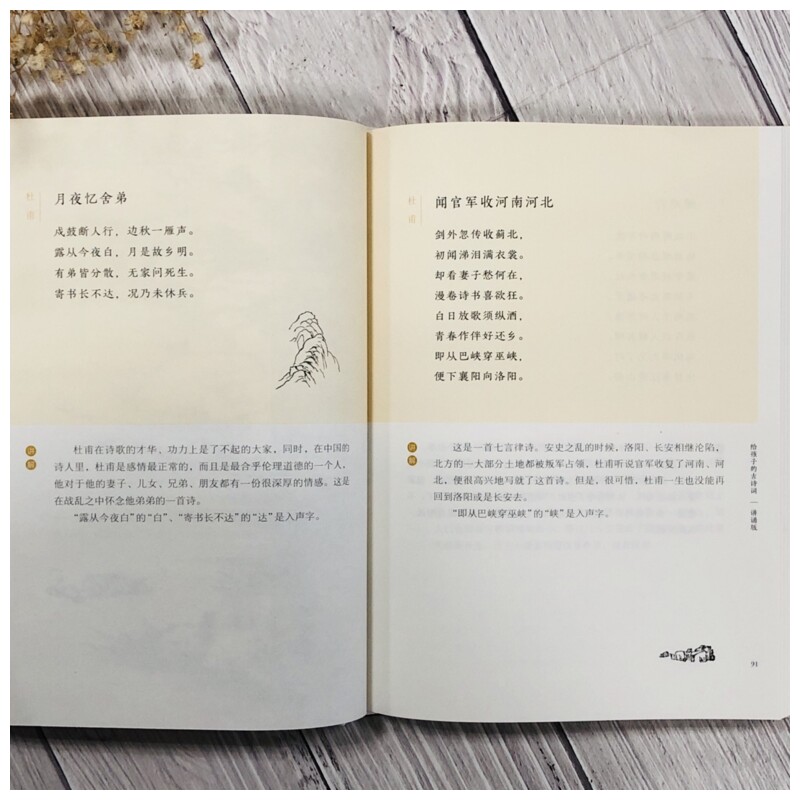 杜甫
月夜忆舍弟
戍鼓断人行，边秋一雁声。
露从今夜白，月是故乡明。
有弟皆分散，无家问死生。
寄书长不达，况乃未休兵。
讲解
杜甫在诗歌的才华、功力上是了不起的大家，同时，在中国的
诗人里，杜甫是感情最正常的，而且是最合乎伦理道德的一个人，
他对于他的妻子、儿女、兄弟、朋友都有一份很深厚的情感。这是
在战乱之中怀念他弟弟的一首诗。
“露从今夜白”的“白”、“寄书长不达”的“达”是入声字。
杜甫
闻官军收河南河北
剑外忽传收蓟北，
初闻涕泪满衣裳。
却看妻子愁何在，
漫卷诗书喜欲狂。
白日放歌须纵酒，
青春作伴好还乡。
即从巴峡穿巫峡，
便下襄阳向洛阳。
讲解
这是一首七言律诗。安史之乱的时候，洛阳、长安相继沦陷，
北方的一大部分土地都被叛军占领，杜甫听说官军收复了河南、河
北，便很高兴地写就了这首诗。但是，很可惜，杜甫一生也没能再
回到洛阳或是长安去。
“即从巴峡穿巫峡”的“峡”是入声字。
给孩子的古诗词 — 讲诵版
91